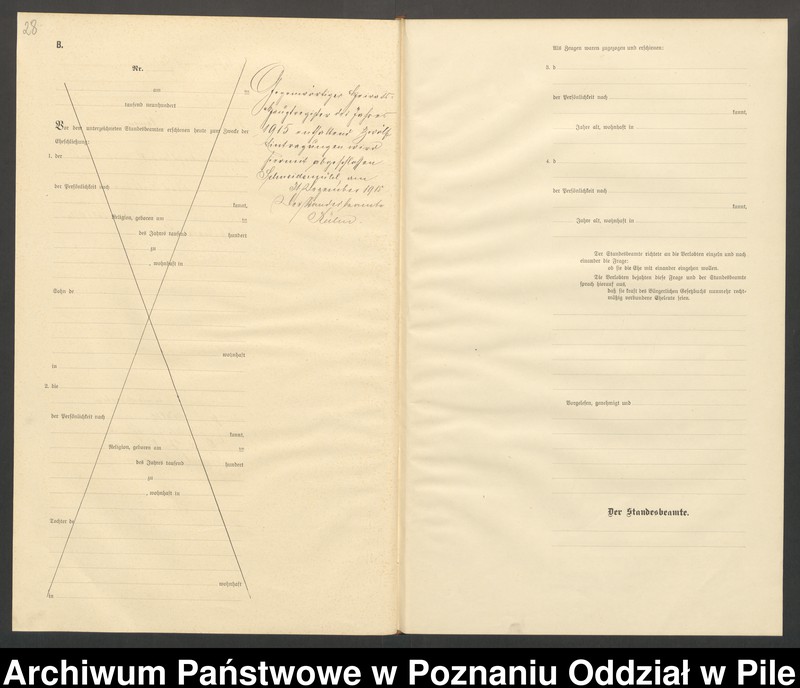 28
B.
Nr.
am ten
tausend neunhundert
Vor dem unterzeichneten Standesbeamten erschienen heute zum Zwecke der
Eheschließung:
1. der
der Persönlichkeit nach
kannt,
Religion, geboren am ten
des Jahres tausend hundert
zu
, wohnhaft in
Sohn de
wohnhaft
in
2. die
der Persönlichkeit nach
kannt,
Religion, geboren am ten
des Jahres tausend hundert
zu
, wohnhaft in
Tochter de
wohnhaft
in
Gegenwärtiges Heirats-
Hauptregister des Jahres
1915 enthaltend zwölf
Eintragungen wird
hiermit abgeschlossen
Schneidemühl, am
31 Dezember 1915
Der Standesbeamte
Als Zeugen waren zugezogen und erschienen:
3. d
der Persönlichkeit nach
kannt,
Jahre alt, wohnhaft in
4. d
der Persönlichkeit nach
kannt,
Jahre alt, wohnhaft in
Der Standesbeamte richtete an die Verlobten einzeln und nach
einander die Frage:
ob sie die Ehe mit einander eingehen wollen.
Die Verlobten bejahten diese Frage und der Standesbeamte
sprach hierauf aus,
daß sie kraft des Bürgerlichen Gesetzbuchs nunmehr recht-
mäßig verbundene Eheleute seien.
Vorgelesen, genehmigt und
Der Standesbeamte.
Archiwum Państwowe w Poznaniu Oddział w Pile